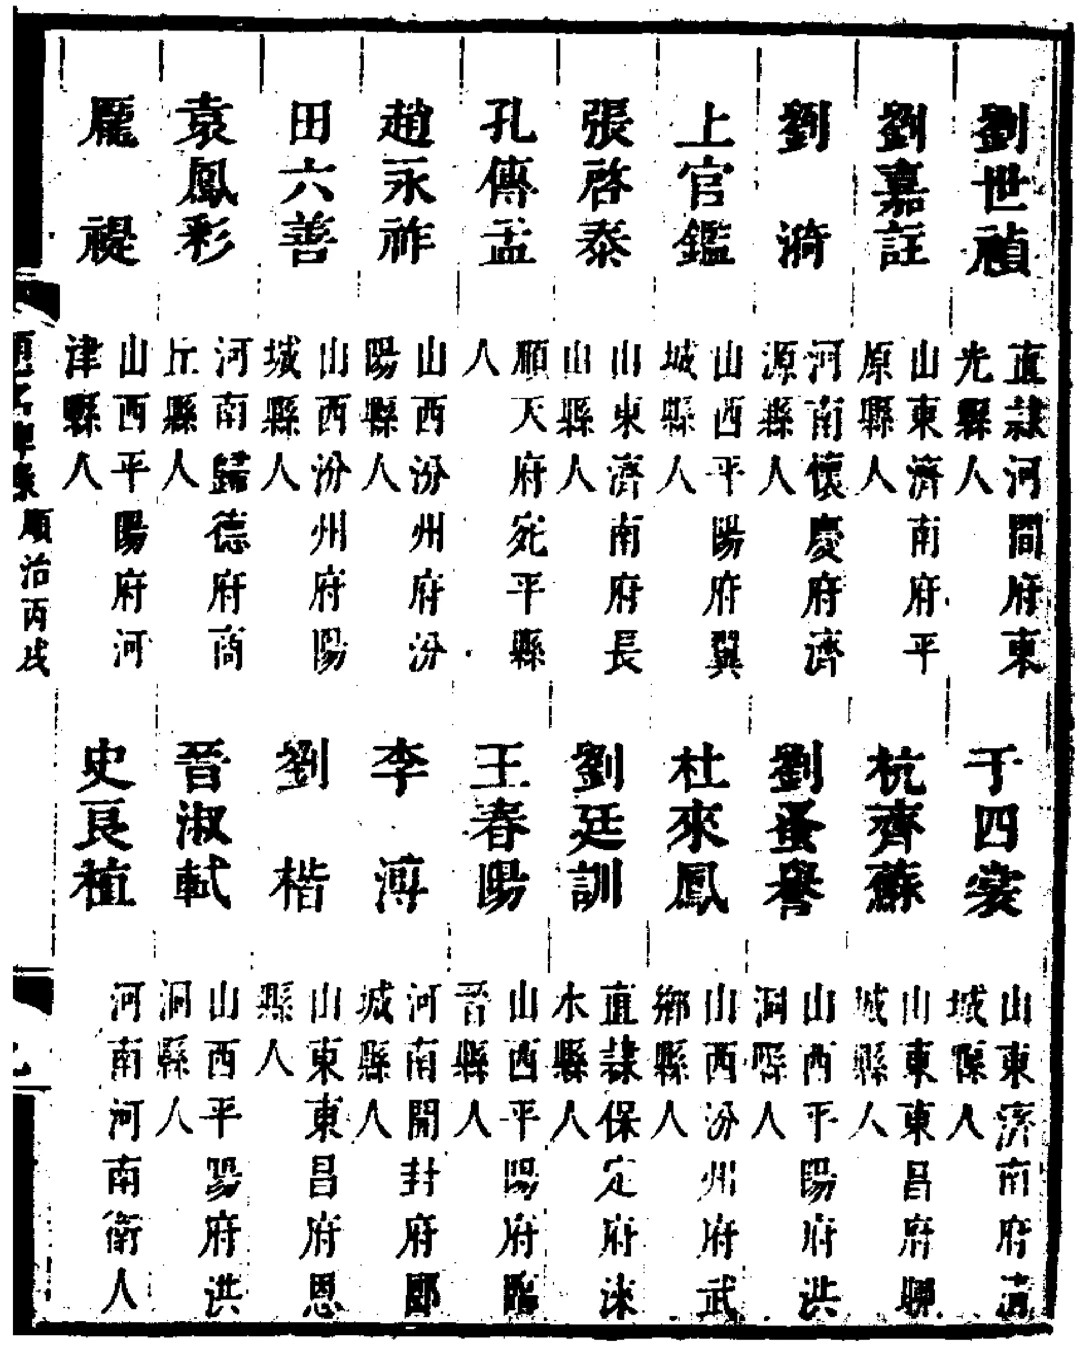 劉世禎
直隸河間府東
光縣人
劉嘉註
山東濟南府平
原縣人
劉漪
河南懷慶府濟
源縣人
上官鑑
山西平陽府翼
城縣人
張啓泰
山東濟南府長
山縣人
孔傳孟
順天府宛平縣
人
趙永祚
山西汾州府汾
陽縣人
田六善
山西汾州府陽
城縣人
袁鳳彩
河南歸德府商
丘縣人
龎禔
山西平陽府河
津縣人
于四裳
山東濟南府
城縣人
杭齊蘇
山東東昌府聊
城縣人
劉蚤譽
山西平陽府洪
洞縣人
杜來鳳
山西汾州府武
鄉縣人
劉廷訓
直隸保定府淶
水縣人
王春陽
山西平陽府臨
晉縣人
李溥
河南開封府郾
城縣人
劉楷
山東東昌府恩
縣人
晉淑軾
山西平陽府洪
洞縣人
史良植
河南河南衛人
題名碑錄
順治丙戌